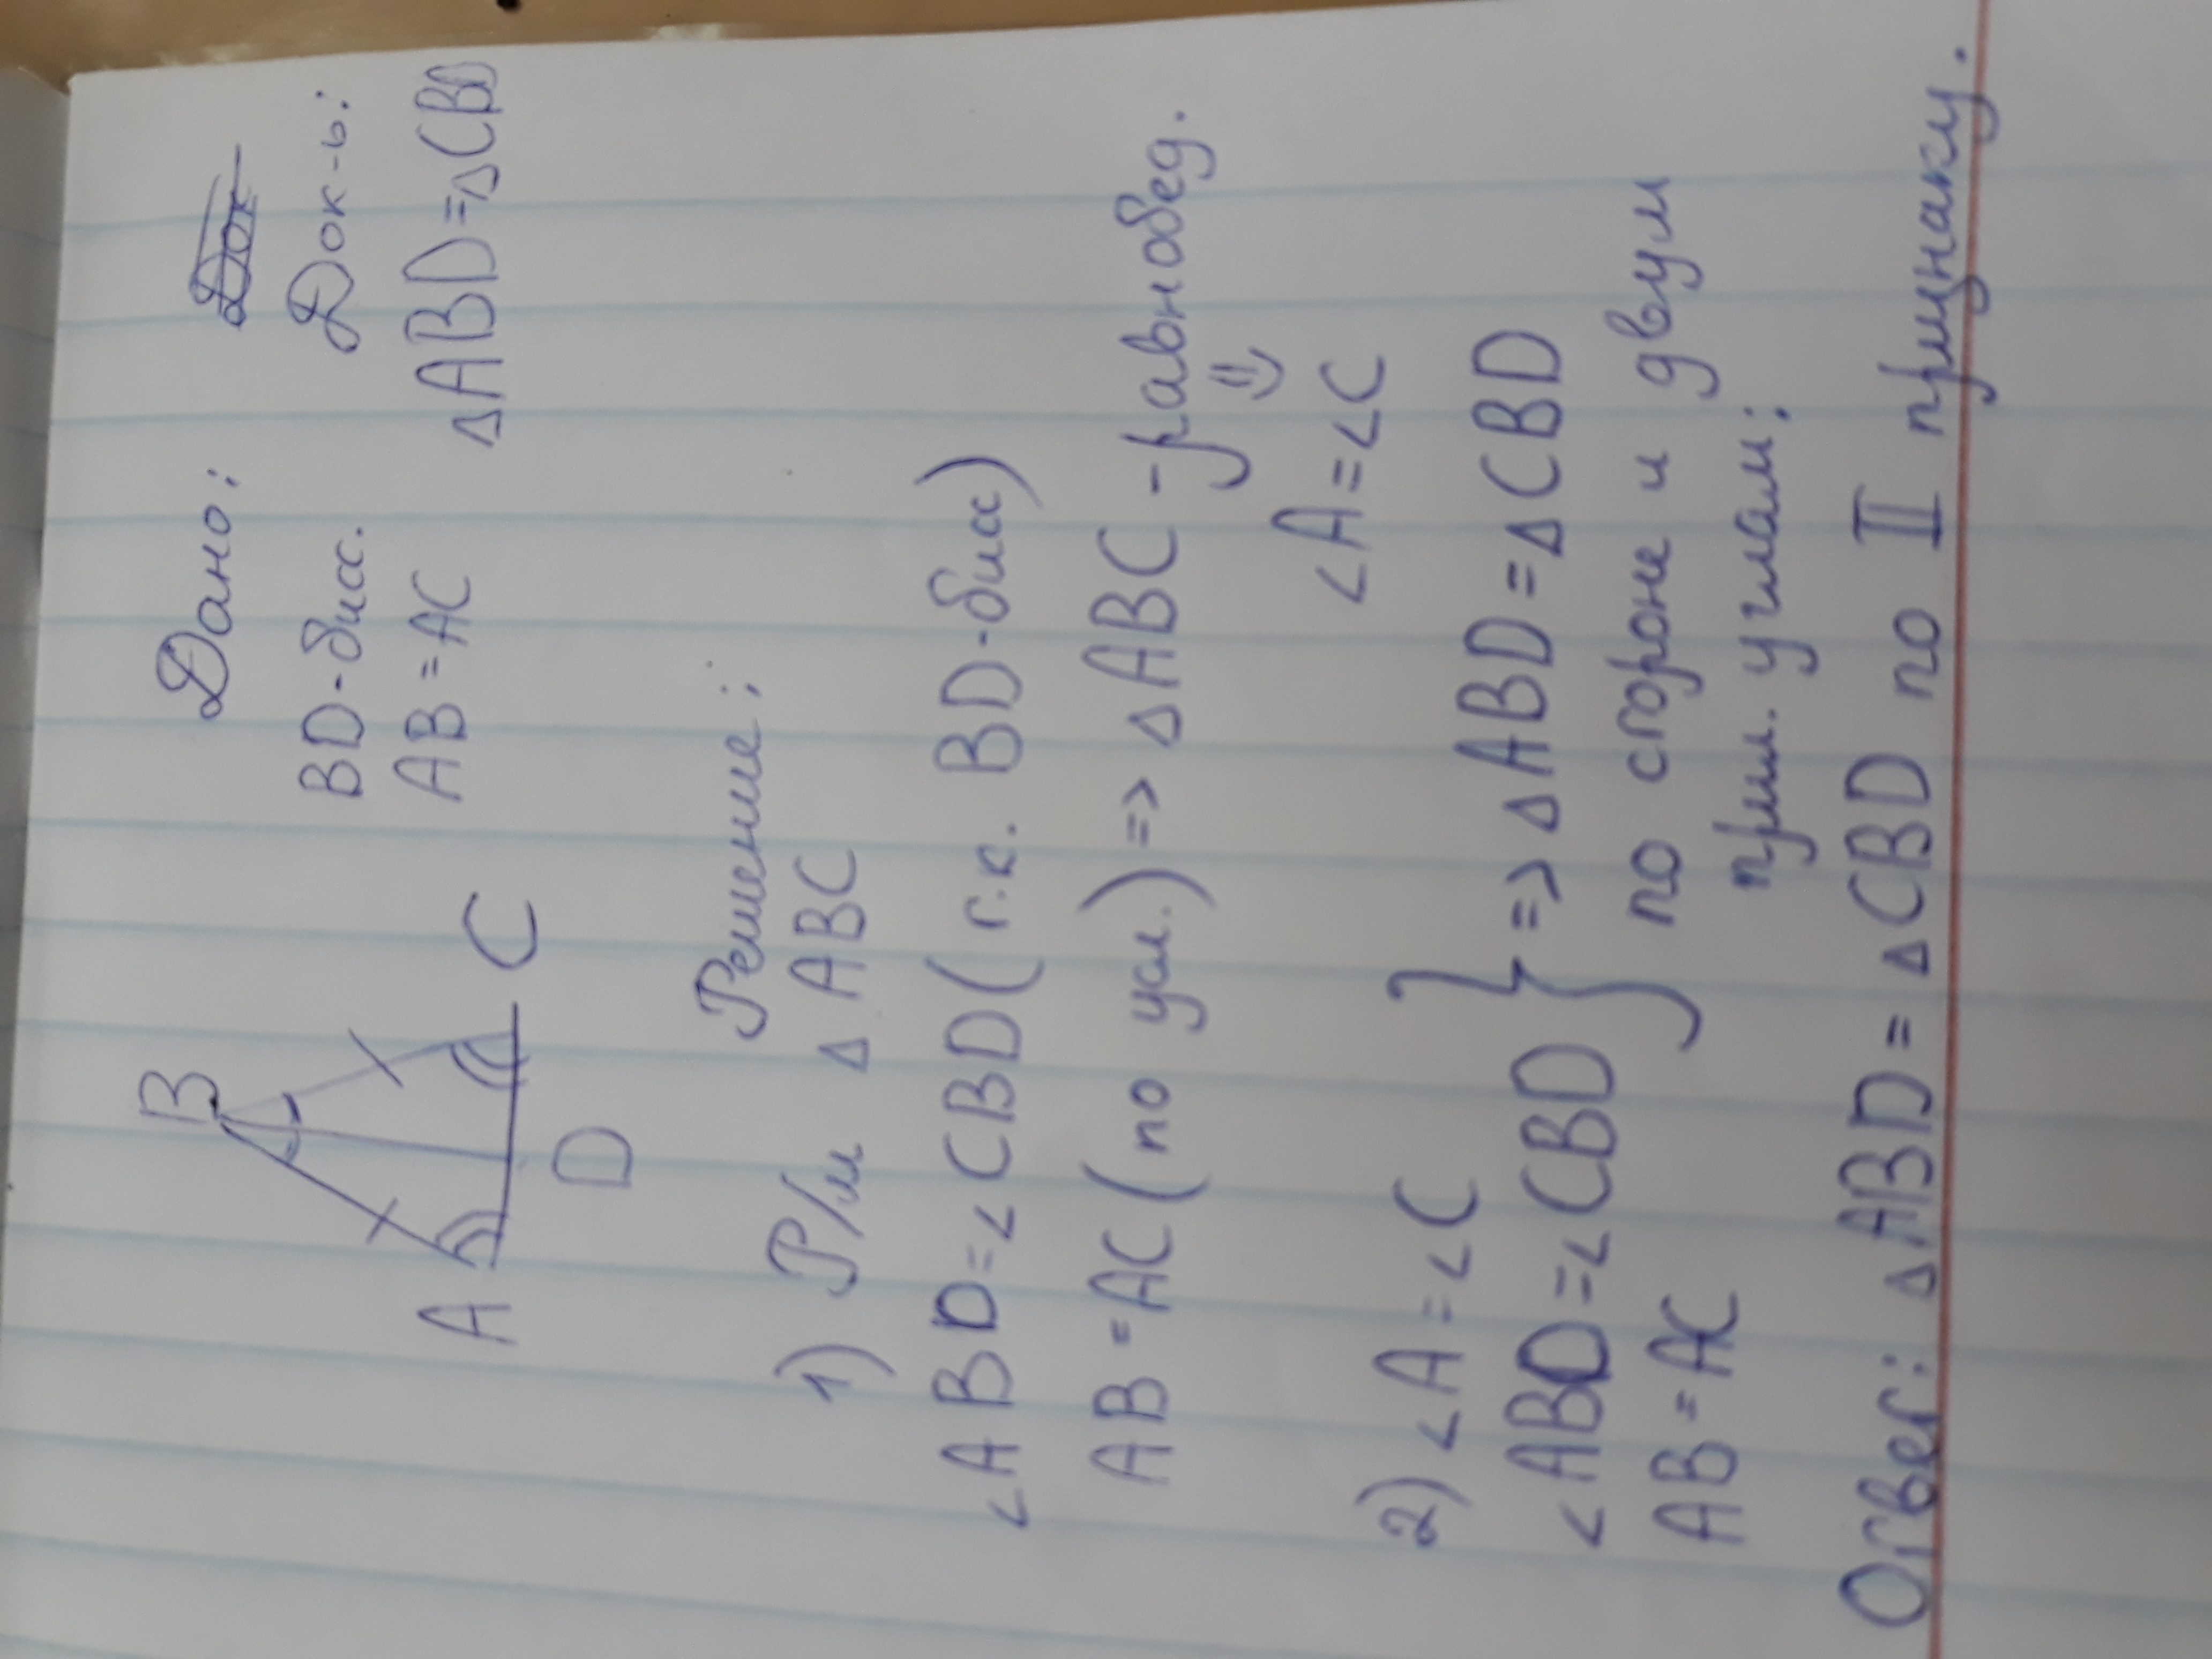 Дано:
BD-бисс.
AB=AC
Док-ь:
△ABD=△CBD
B
A
D
C
Решение:
1) Р/м △ABC
∠ABD=∠CBD (т.к. BD-бисс)
AB=AC (по усл.) => △ABC -равнобед.
=>
∠A=∠C
2) ∠A=∠C
∠ABD=∠CBD } => △ABD=△CBD
AB=AC
по стороне и двум
прил. углам;
Ответ: △ABD=△CBD по II признаку.